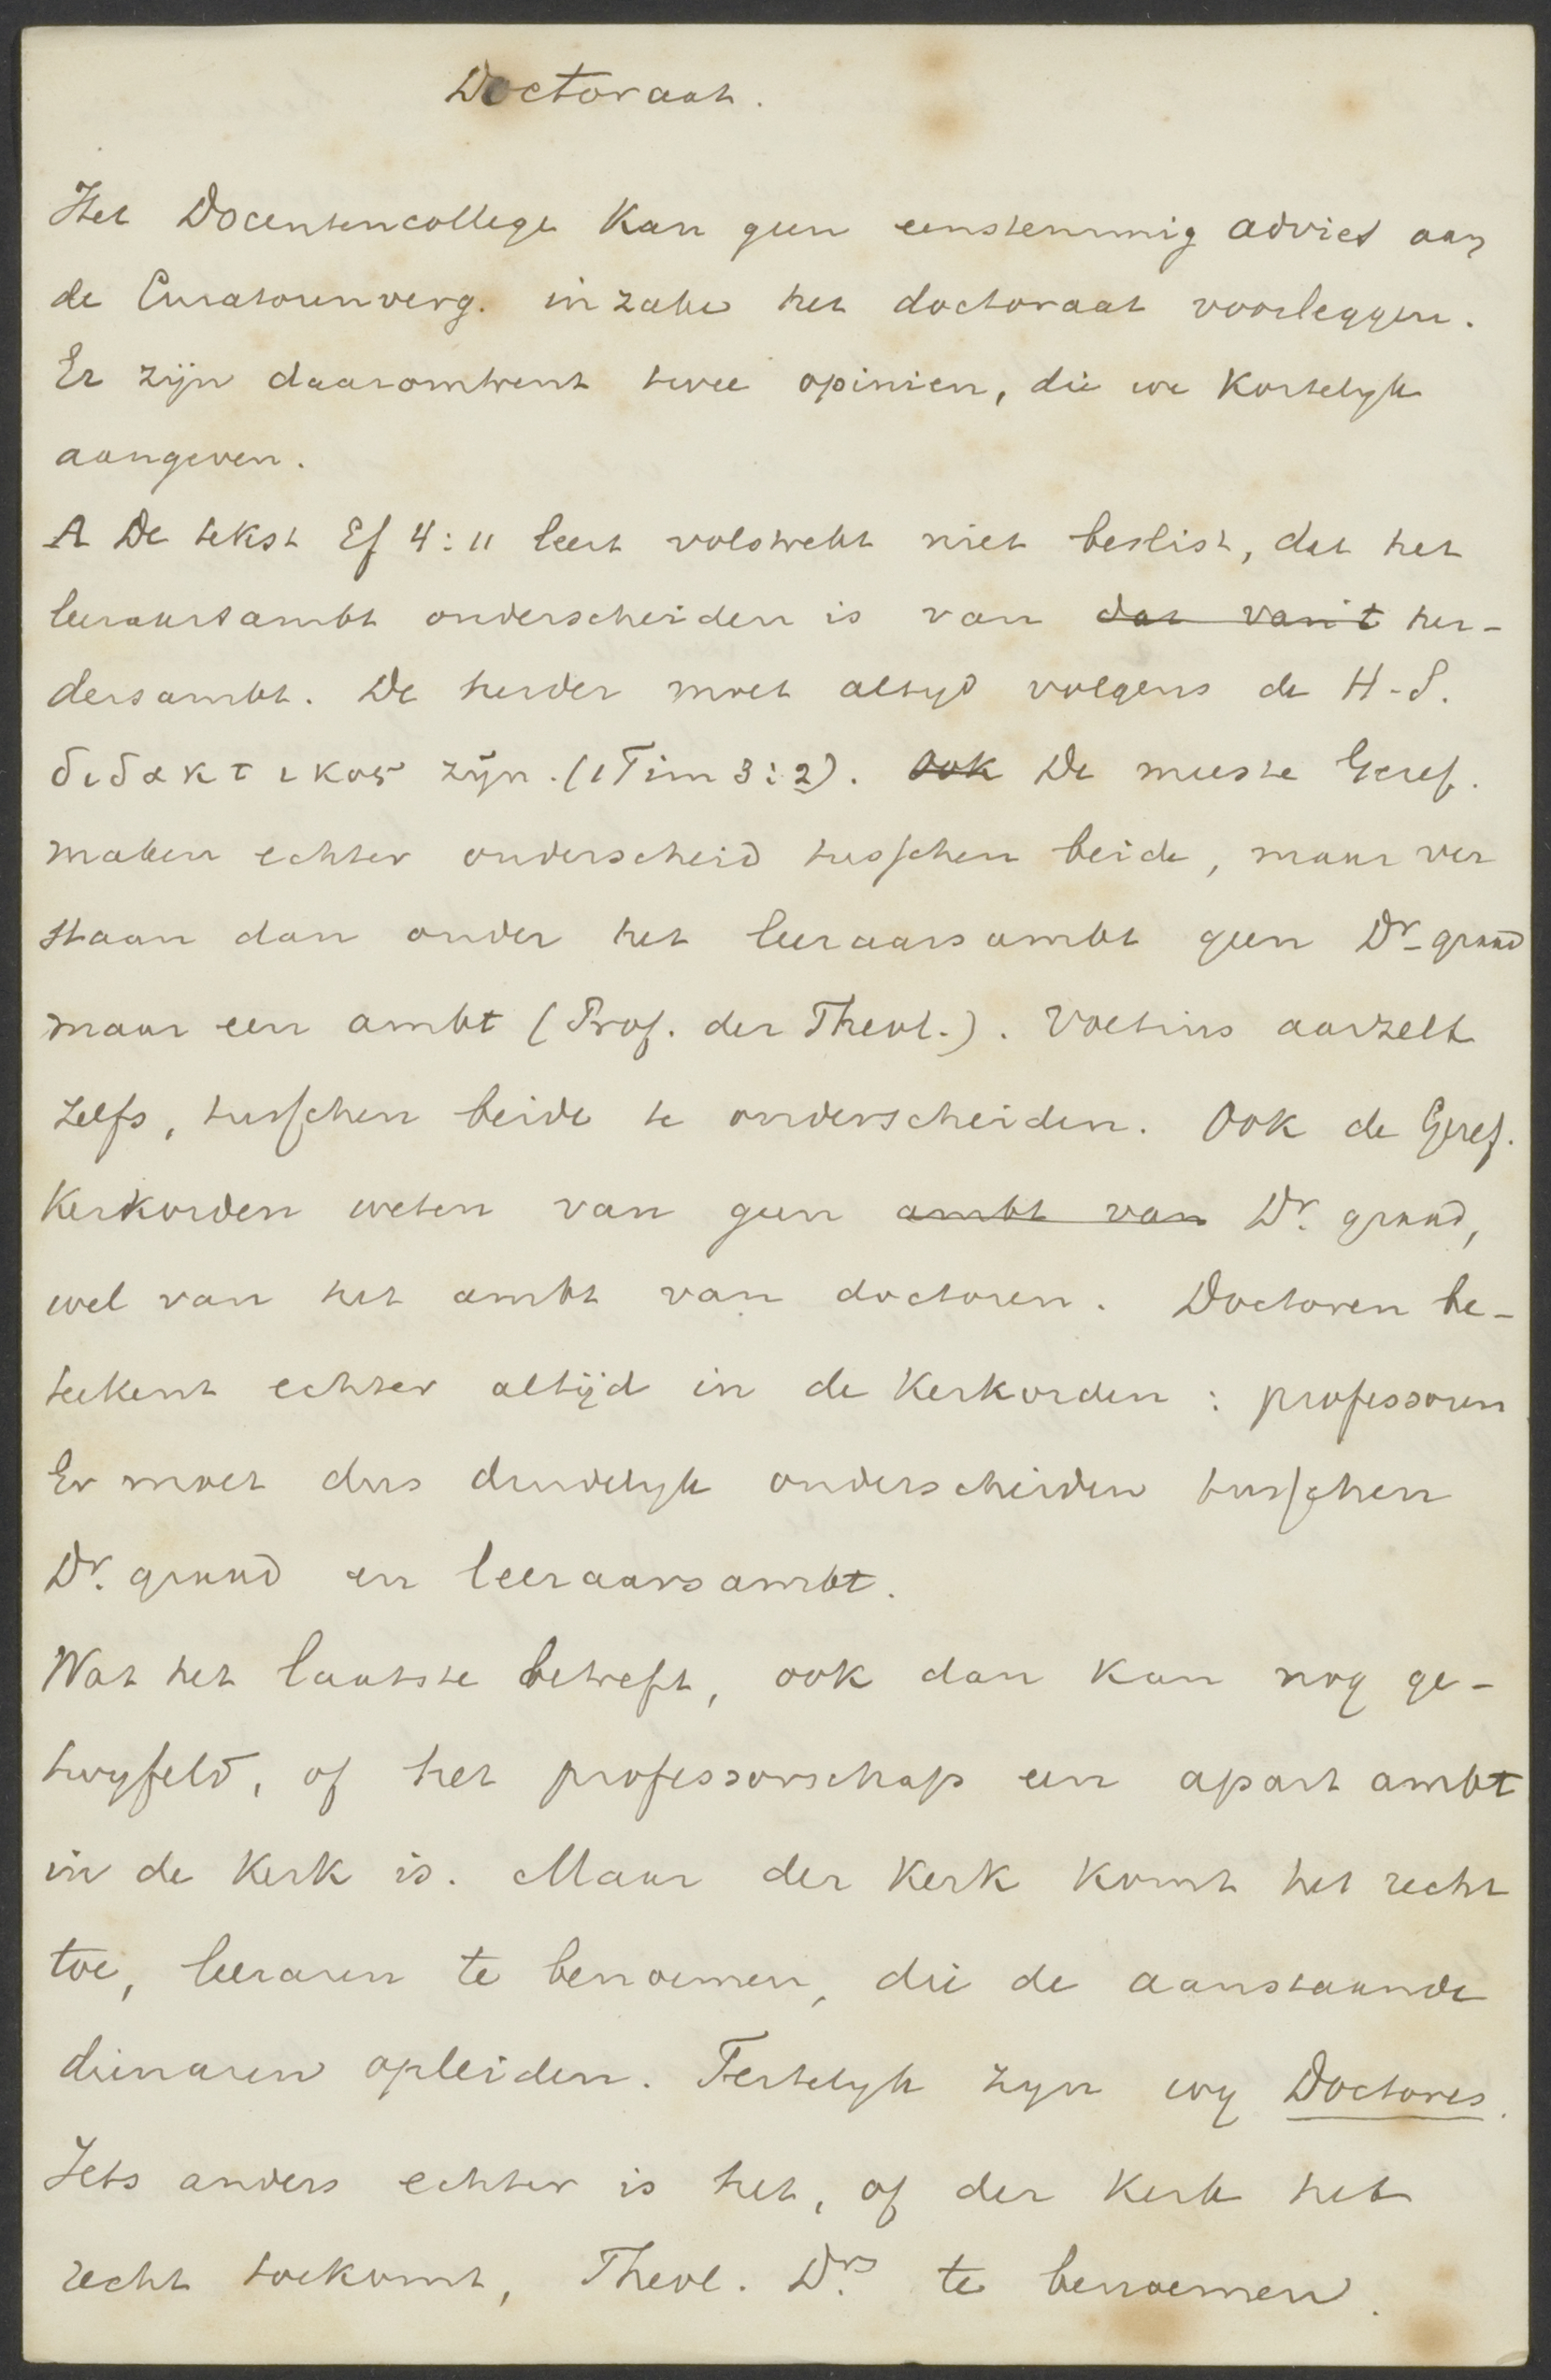 Doctoraat.
Het Docentencollege kan geen eenstemmig advies aan
de Curatorenverg. inzake het doctoraat voorleggen.
Er zijn daaromtrent twee opinien, die we kortelyk
aangeven.
A De tekst Ef 4:11 leert volstrekt niet beslist, dat het
leeraarsambt onderscheiden is van dat van 't her-
dersambt. De herder moet altyd volgens de H-S.
διδακτικος zijn. (1 Tim 3:2). Ook De meeste Geref.
maken echter onderscheid tusschen beide, maar ver
staan dan onder het leeraarsambt geen Dr-graad
maar een ambt (Prof. der Theol.). Voetius aarzelt
zelfs, tusschen beide te onderscheiden. Ook de Geref.
Kerkorden weten van geen ambt van Dr. graad,
wel van het ambt van doctoren. Doctoren be-
teekent echter altijd in de Kerkorden: professoren
Er moet dus duidelyk onderscheiden tusschen
Dr. graad en leeraarsambt.
Wat het laatste betreft, ook dan kan nog ge-
twyfeld, of het professorschap een apart ambt
in de Kerk is. Maar der Kerk komt het recht
toe, leeraren te benoemen, die de aanstaande
dienaren opleiden. Feitelyk zyn wy Doctores.
Iets anders echter is het, of der Kerk het
recht toekomt, Theol. Drs. te benoemen.